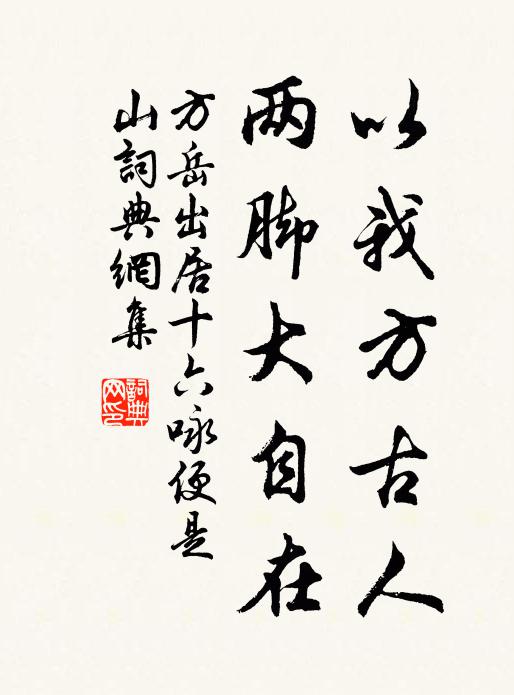 以我方古人
两脚大自在
方岳出居十六咏便是
山詞典網集
詞典
网印